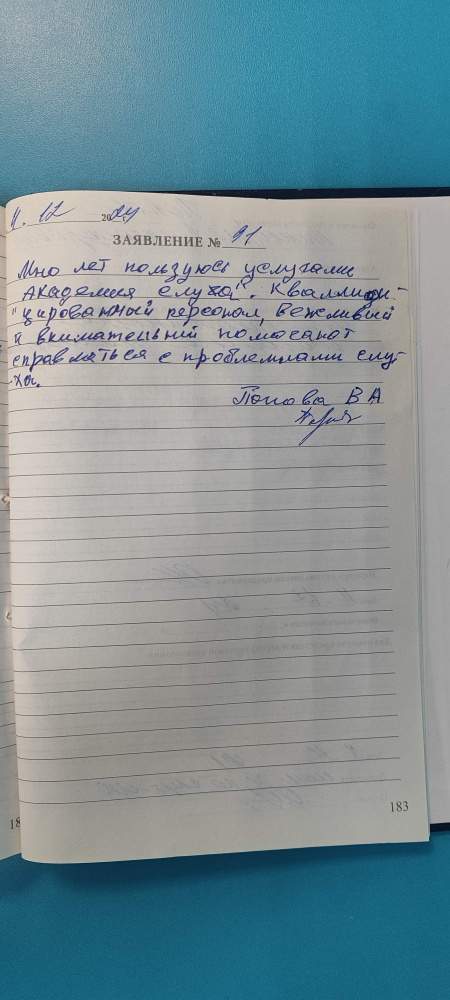 11. 12 2024
ЗАЯВЛЕНИЕ № 91
Мно лет пользуюсь услугами
Академия слуха". Квалифи-
"цированный персонал, вежливый
и внимательный помогают
справляться с проблемами слу-
-ха.
Попова В А
183